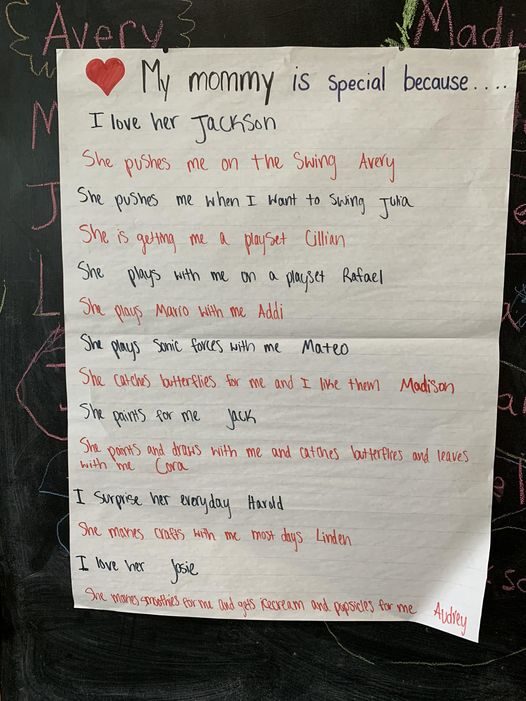 Avery
Madi
My mommy is special because....
I love her Jackson
She pushes me on the Swing Avery
She pushes me when I want to swing Julia
She is getting me a playset Cillian
She plays with me on a playset Rafael
She plays Mario with me Addi
She plays Sonic forces with me Mateo
She catches butterflies for me and I like them Madison
She paints for me Jack
She paints and draws with me and catches butterflies and leaves
with me Cora
I surprise her everyday Harold
She makes crafts with me most days Linden
I love her Josie
She makes smoothies for me and gets icecream and popsicles for me Audrey